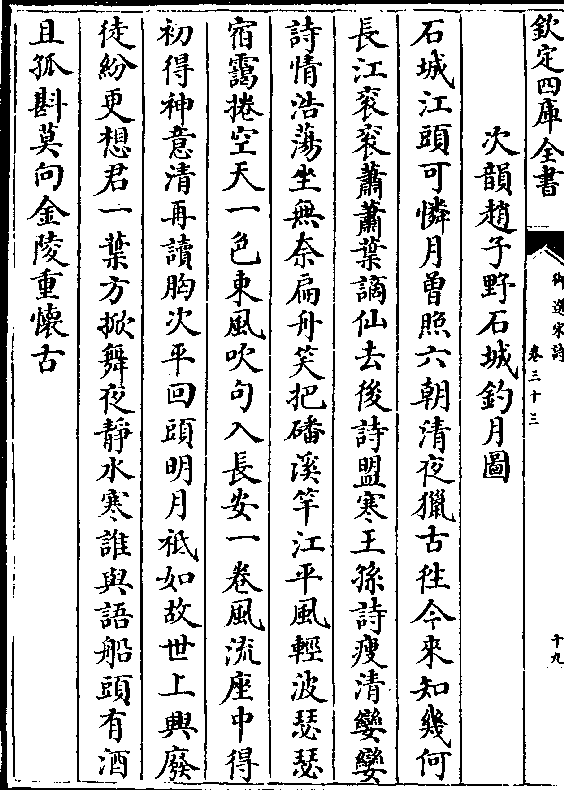 欽定四庫全書
御選宋詩
卷三十三
十九
次韻趙子野石城釣月圖
石城江頭可憐月曾照六朝清夜獵古徃今來知幾何
長江衮衮蕭蕭葉謫仙去後詩盟寒王孫詩瘦清孌孌
詩情浩蕩坐無奈扁舟笑把磻溪竿江平風輕波瑟瑟
宿靄捲空天一色東風吹句入長安一卷風流座中得
初得神意清再讀胸次平回頭明月祗如故世上興廢
徒紛更想君一葉方掀舞夜静水寒誰與語船頭有酒
且孤斟莫向金陵重懷古